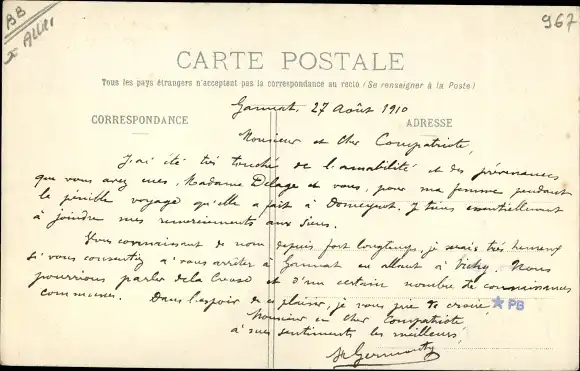 BB
967
CARTE POSTALE
Tous les pays étrangers n'acceptent pas la correspondance au recto (Se renseigner à la Poste)
CORRESPONDANCE
ADRESSE
Gannat, 27 Août 1910
Monsieur et Cher Compatriote,
J'ai été très touché de l'amabilité et des prévenances
que vous avez eues, Madame Delage et vous, pour ma femme pendant
le pénible voyage qu'elle a fait à Domeyrot. Je tiens essentiellement
à joindre mes remerciements aux siens.
Vous connaissant de nom depuis fort longtemps, je serais très heureux
si vous consentiez à vous arrêter à Gannat en allant à Vichy. Nous
pourrions parler de la Creuse et d'un certain nombre de connaissances
communes. Dans l'espoir de ce plaisir, je vous prie de croire,
Monsieur et Cher Compatriote,
à mes sentiments les meilleurs,
PB